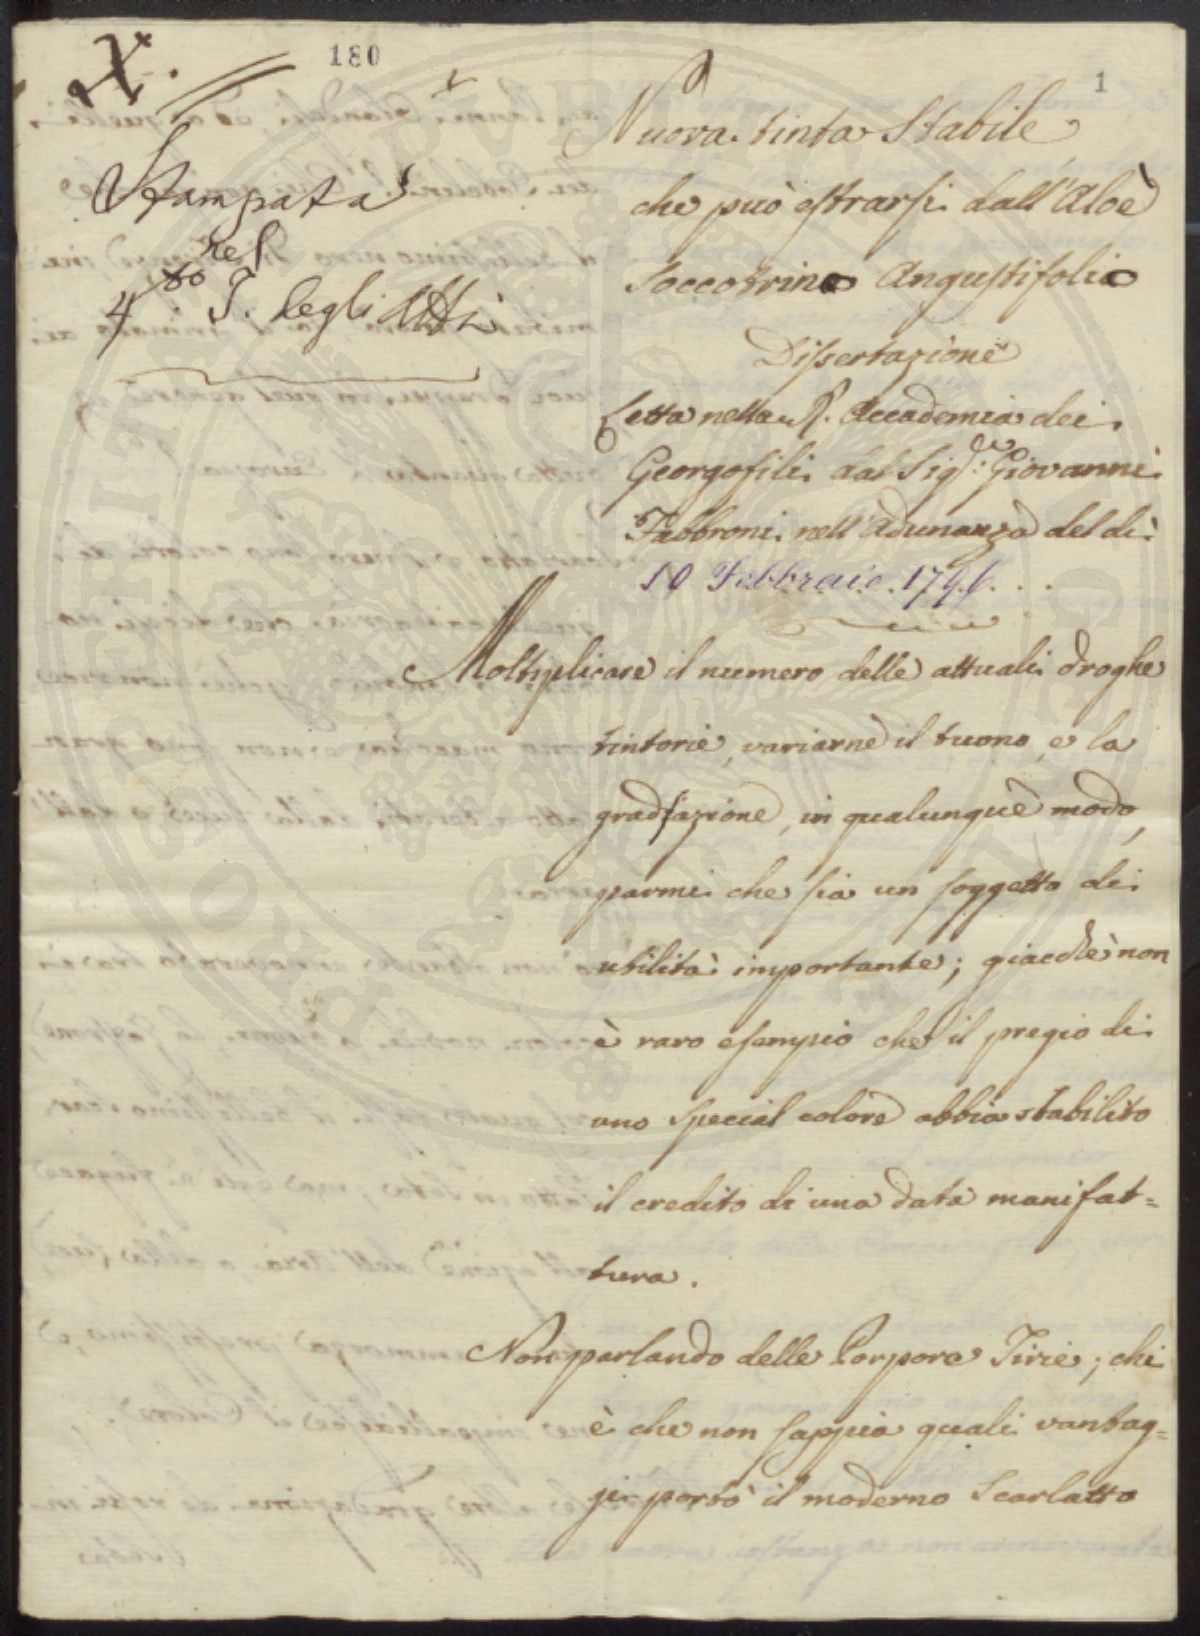 X.
180
1
Stampata
nel
4to T. degli Atti
Nuova tinta Stabile
che può estrarsi dall'Aloè
Soccotrino Angustifolio
Dissertazione
Letta nella R. Accademia dei
Georgofili dal Sigr: Giovanni
Fabbroni nell'Adunanza del dì
10 Febbraio 1796.
Moltiplicare il numero delle attuali droghe
tintorie, variarne il tuono, e la
gradazione, in qualunque modo,
parmi che sia un soggetto di
utilità importante; giacchè non
è raro esempio che il pregio di
uno special colore abbia stabilito
il credito di una data manifat=
tura.
Non parlando delle Porpore Tirie; chi
è che non sappia quali vantag=
gi portò il moderno Scarlatto